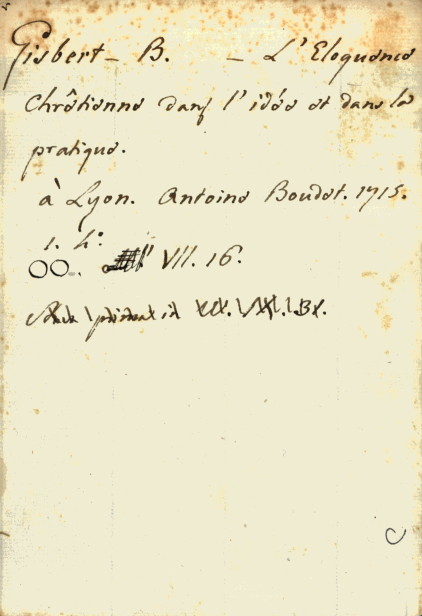 Gisbert – B. – L'Eloquence
Chrêtienne dans l'idée et dans la
pratique.
à Lyon. Antoine Boudet. 1715.
1. 4º
OO. VII. 16.
C